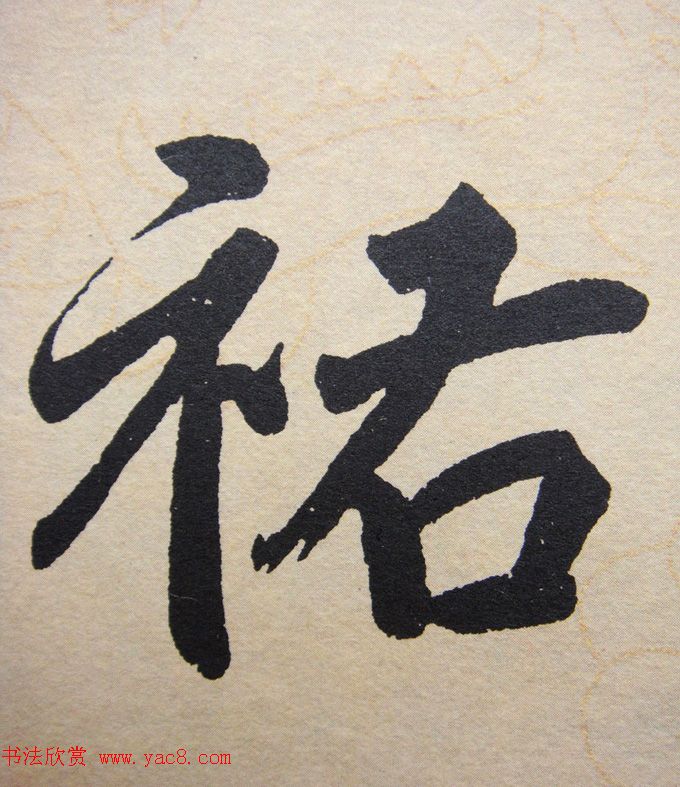 祐
书法欣赏 www.yac8.com